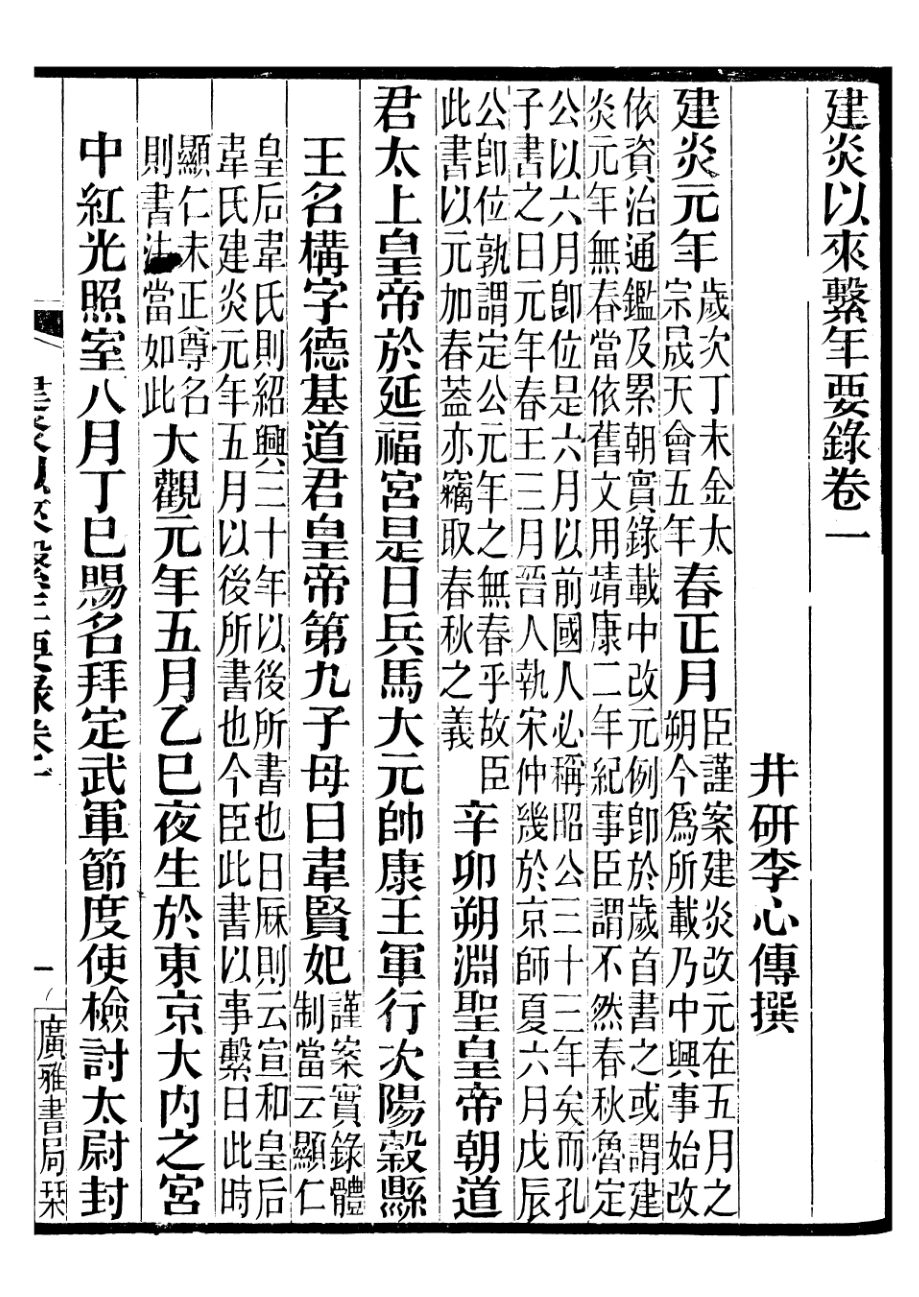 建炎以來繫年要錄卷一
井研李心傳撰
建炎元年歲次丁未金太宗晟天會五年春正月臣謹案建炎改元在五月之朔今爲所載乃中興事始改
依資治通鑑及累朝實錄載中改元例卽於歲首書之或謂建
炎元年無春當依舊文用靖康二年紀事臣謂不然春秋魯定
公以六月卽位是六月以前國人必稱昭公三十三年矣而孔
子書之曰元年春王三月晉人執宋仲幾於京師夏六月戊辰
公卽位孰謂定公元年之無春乎故臣此書以元加春蓋亦竊取春秋之義辛卯朔淵聖皇帝朝道
君太上皇帝於延福宮是日兵馬大元帥康王軍行次陽穀縣
王名構字德基道君皇帝第九子母曰韋賢妃謹案實錄體制當云顯仁
皇后韋氏則紹興三十年以後所書也日厤則云宣和皇后
韋氏建炎元年五月以後所書也今臣此書以事繫日此時
顯仁未正尊名則書法當如此大觀元年五月乙巳夜生於東京大内之宮
中紅光照室八月丁巳賜名拜定武軍節度使檢討太尉封
一
廣雅書局栞